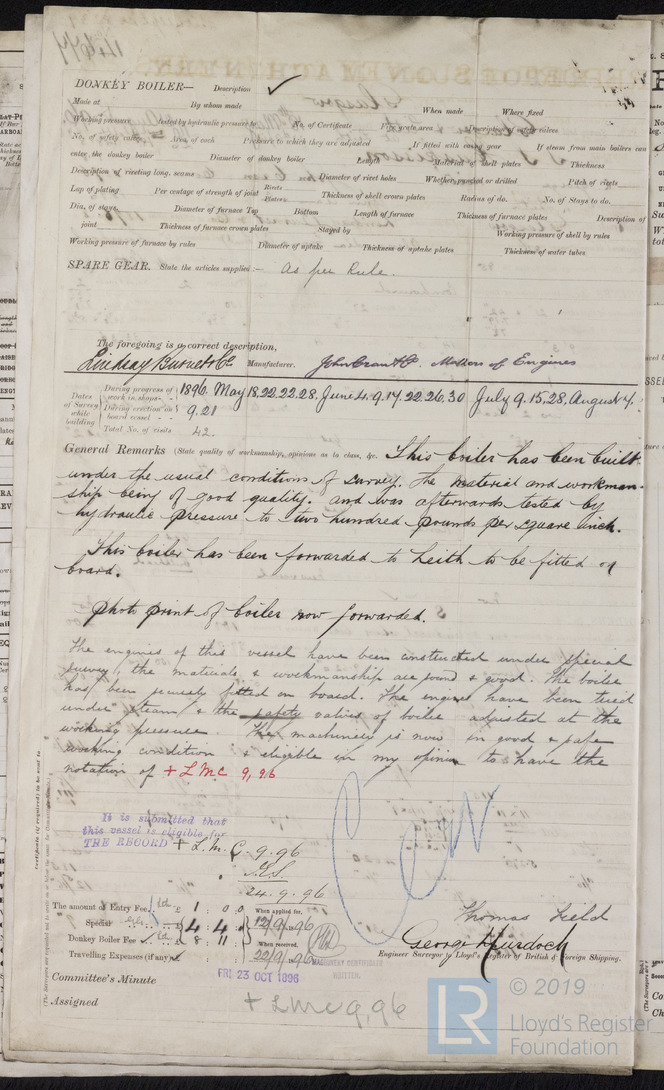 DONKEY BOILER— Description ✓
Made at By whom made When made Where fixed
Working pressure tested by hydraulic pressure to No. of Certificate Fire grate area Description of safety valves
No. of safety valves Area of each Pressure to which they are adjusted If fitted with easing gear If steam from main boilers can
enter the donkey boiler Diameter of donkey boiler Length Material of shell plates Thickness
Description of riveting long. seams Diameter of rivet holes Whether punched or drilled Pitch of rivets
Lap of plating Per centage of strength of joint Rivets Plates Thickness of shell crown plates Radius of do. No. of Stays to do.
Dia. of stays. Diameter of furnace Top Bottom Length of furnace Thickness of furnace plates Description of
joint Thickness of furnace crown plates Stayed by Working pressure of shell by rules
Working pressure of furnace by rules Diameter of uptake Thickness of uptake plates Thickness of water tubes
SPARE GEAR. State the articles supplied:— As per Rule.
The foregoing is a correct description,
Lindsay Burnet & Co Manufacturer. John Grant & Co. Makers of Engines
Dates of Survey while building
During progress of work in shops - - 1896. May 18.22.22.28. June 4.9.17.22.26.30 July 9.15.28. August 4.
During erection on board vessel - - - 9.21
Total No. of visits 42.
General Remarks (State quality of workmanship, opinions as to class, &c. This boiler has been built
under the usual conditions of survey. The material and workman-
ship being of good quality. and was afterwards tested by
hydraulic pressure to two hundred pounds per square inch.
This boiler has been forwarded to Leith to be fitted on
board.
Photo print of boiler now forwarded.
The engines of this vessel have been constructed under special
survey, the materials & workmanship are sound & good. The boiler
has been securely fitted on board. The engines have been tried
under steam & the safety valves of boiler adjusted at the
working pressure. The machinery is now in good & safe
working condition & eligible in my opinion to have the
notation of + LMC 9,96
It is submitted that
this vessel is eligible for
THE RECORD + L.M.C. 9.96
24.9.96
The amount of Entry Fee £ 1 : 0 : 0 When applied for,
Special £ 4 : 4 : 12/9/1896
Donkey Boiler Fee £ 8 : 11 : When received,
Travelling Expenses (if any) £ 22/9/1896
MACHINERY CERTIFICATE
WRITTEN.
Thomas Field
George Murdoch
Engineer Surveyor to Lloyd's Register of British & Foreign Shipping.
Committee's Minute FRI 23 OCT 1896
Assigned + LMC 9,96
Certificate (if required) to be sent to
LR © 2019
Lloyd's Register
Foundation